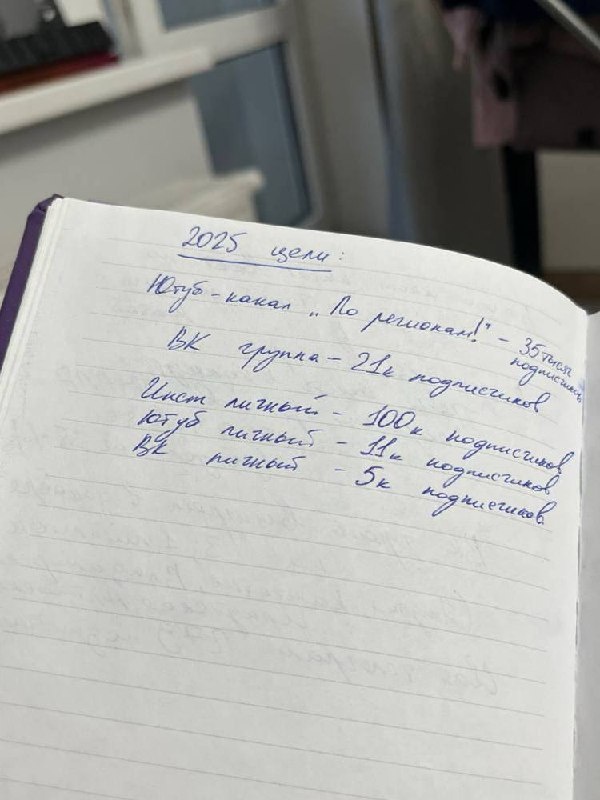 2025 цели:
Ютуб-канал „По регионам!" - 35 тысяч
подписчиков
ВК группа - 21к подписчиков
Инст личный - 100к подписчиков
Ютуб личный - 11к подписчиков
ВК личный - 5к подписчиков